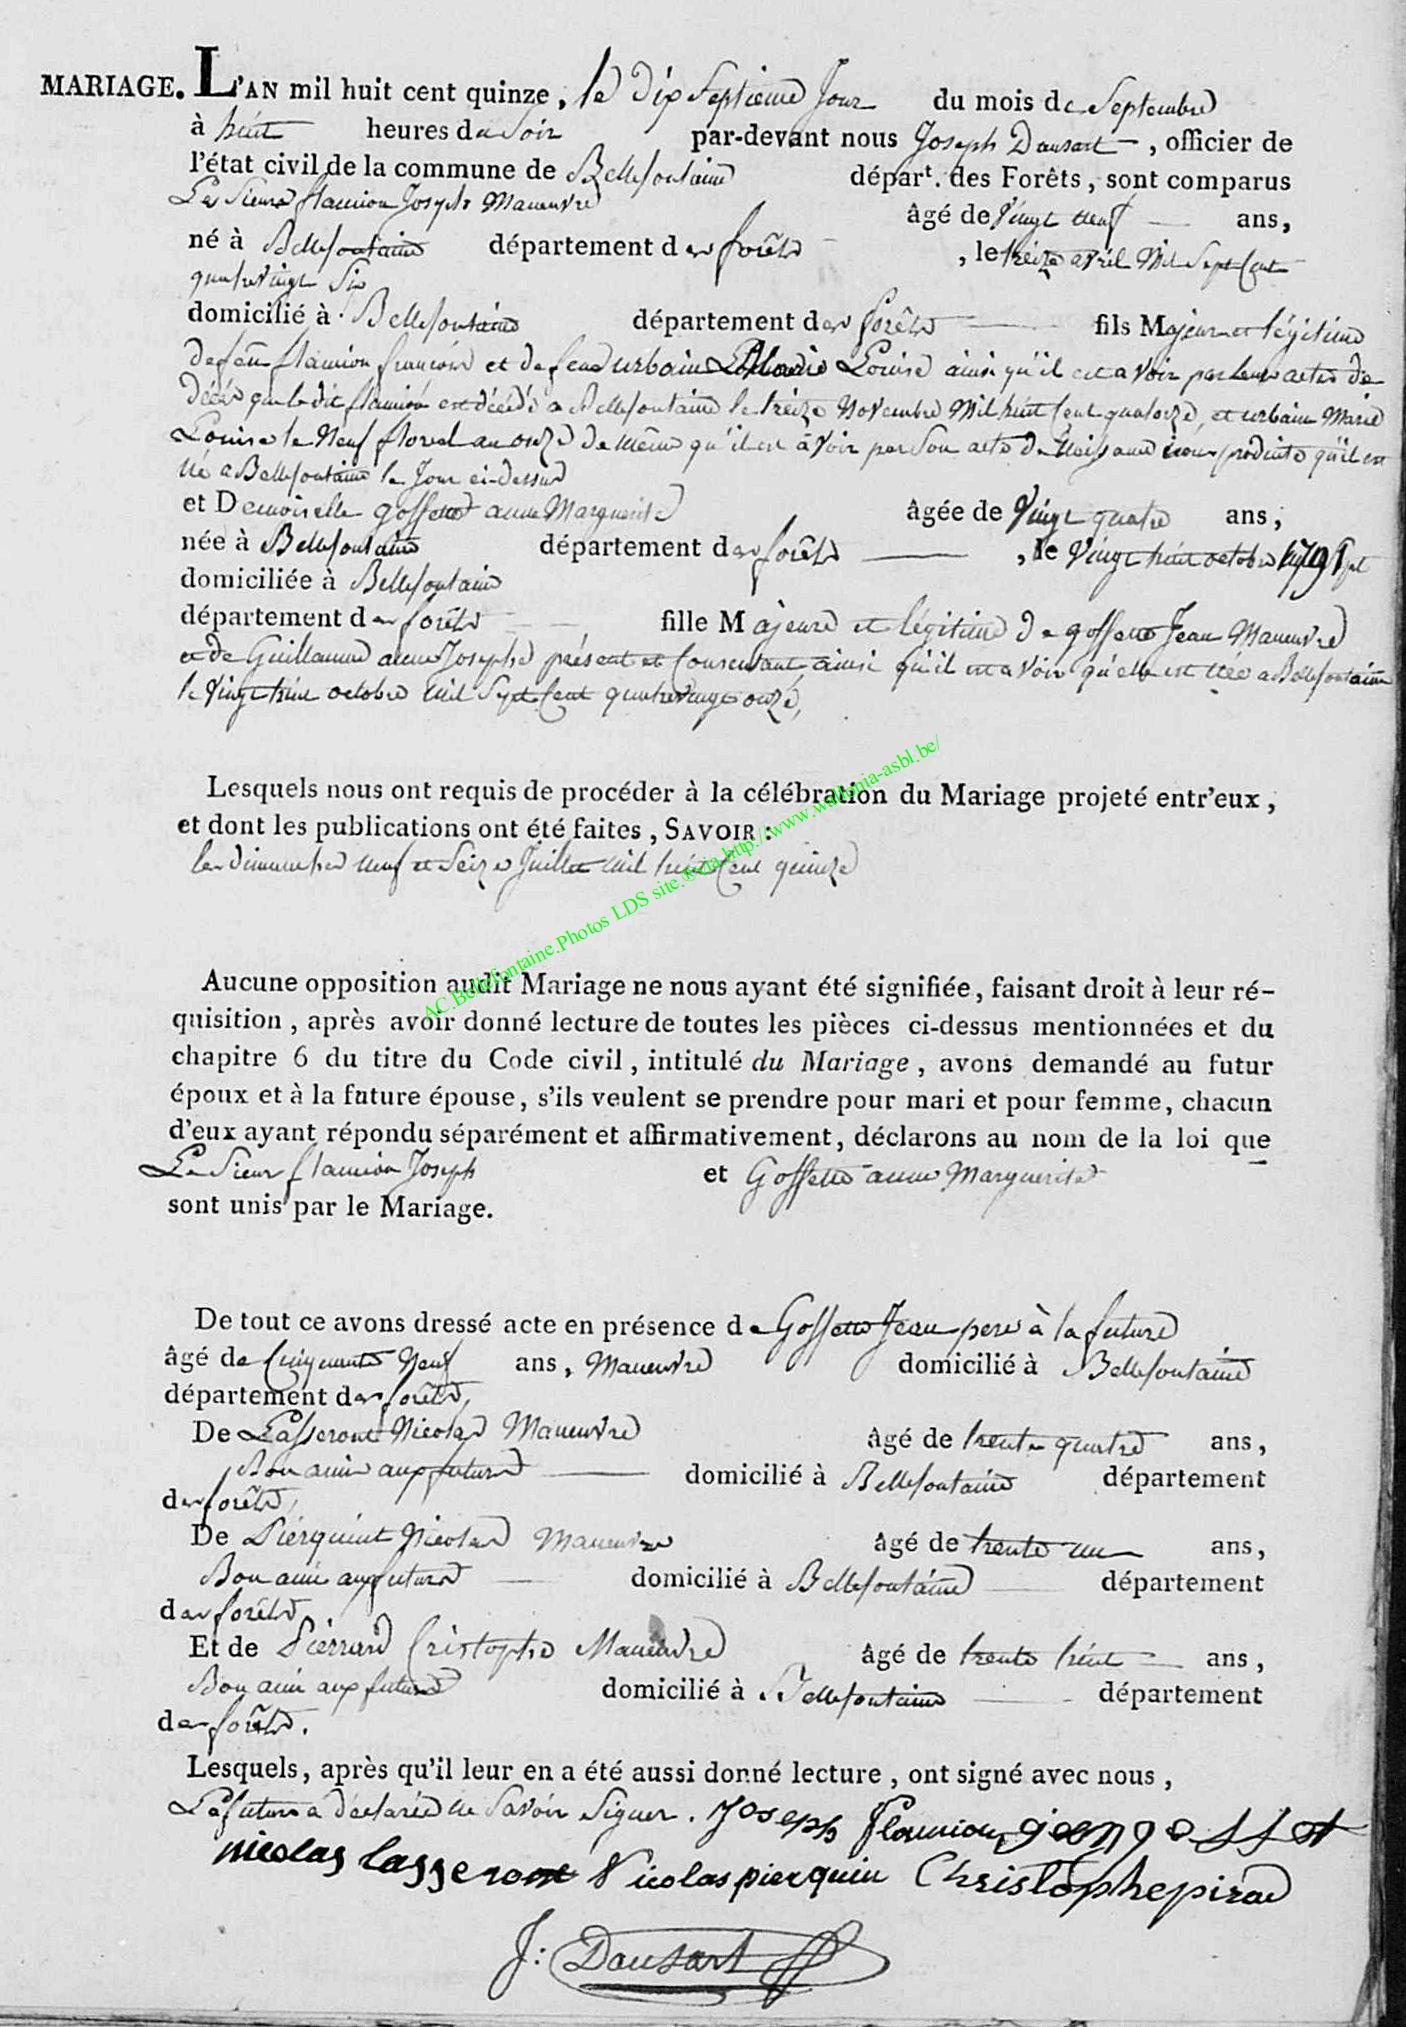 MARIAGE. L'AN mil huit cent quinze, le dix Septieme Jour du mois de Septembre
à huit heures du Soir par-devant nous Joseph Dausart, officier de
l'état civil de la commune de Bellefontaine départ. des Forêts, sont comparus
Le Sieur flamion Joseph Maneuvre âgé de Vingt neuf ans,
né à Bellefontaine département des forêts, le treize avril Mil Sept Cent
quatrevingt Six
domicilié à Bellefontaine département des forêts fils Majeur et légitime
de feu flamion francois et de feue urbain Marie Louise ainsi qu'il est a voir par leurs actes de
Décès que le dit flamion est décédé a Bellefontaine le treize Novembre Mil huit Cent quatorze, et urbain Marie
Louise le Neuf floreal an onze de même qu'il est à voir par Son acte de Naissance nous produite qu'il est
né a Bellefontaine le Jour ci-dessus
et Demoiselle gossette anne Marguerite âgée de Vingt quatre ans,
née à Bellefontaine département des forêts, le Vingt huit octobre 1791
domiciliée à Bellefontaine
département des forêts fille Majeure et légitime de gossette Jean Maneuvre
et de Guillaume anne Josephe présent et Consentant ainsi qu'il est a voir qu'elle est née a Bellefontaine
le Vingt huit octobre mil Sept Cent quatrevingt onze,
Lesquels nous ont requis de procéder à la célébration du Mariage projeté entr'eux,
et dont les publications ont été faites, SAVOIR:
les dimanches neuf et Seize Juillet mil huit Cent quinze
AC.Bellefontaine.Photos LDS site.®cia.http://www.wallonia-asbl.be/
Aucune opposition audit Mariage ne nous ayant été signifiée, faisant droit à leur ré-
quisition, après avoir donné lecture de toutes les pièces ci-dessus mentionnées et du
chapitre 6 du titre du Code civil, intitulé du Mariage, avons demandé au futur
époux et à la future épouse, s'ils veulent se prendre pour mari et pour femme, chacun
d'eux ayant répondu séparément et affirmativement, déclarons au nom de la loi que
Le Sieur flamion Joseph et Gossette anne Marguerite
sont unis par le Mariage.
De tout ce avons dressé acte en présence de Gossette Jean pere à la future
âgé de Cinquante Neuf ans, Maneuvre domicilié à Bellefontaine
département des forêts,
De Lasseront Nicolas Maneuvre âgé de trente quatre ans,
Bon ami aux futurs domicilié à Bellefontaine département
des forêts,
De Piérquint Nicolas Maneuvre âgé de trente un ans,
Bon ami aux futurs domicilié à Bellefontaine département
des forêts.
Et de Piérrard Cristophe Maneuvre âgé de trente huit ans,
Bon ami aux futurs domicilié à Bellefontaine département
des forêts.
Lesquels, après qu'il leur en a été aussi donné lecture, ont signé avec nous,
La future a déclarée ne Savoir Signer. Joseph flamion jean gosset
nicolas lasseront Nicolas pierquin Christophe pirard
J: Dausart